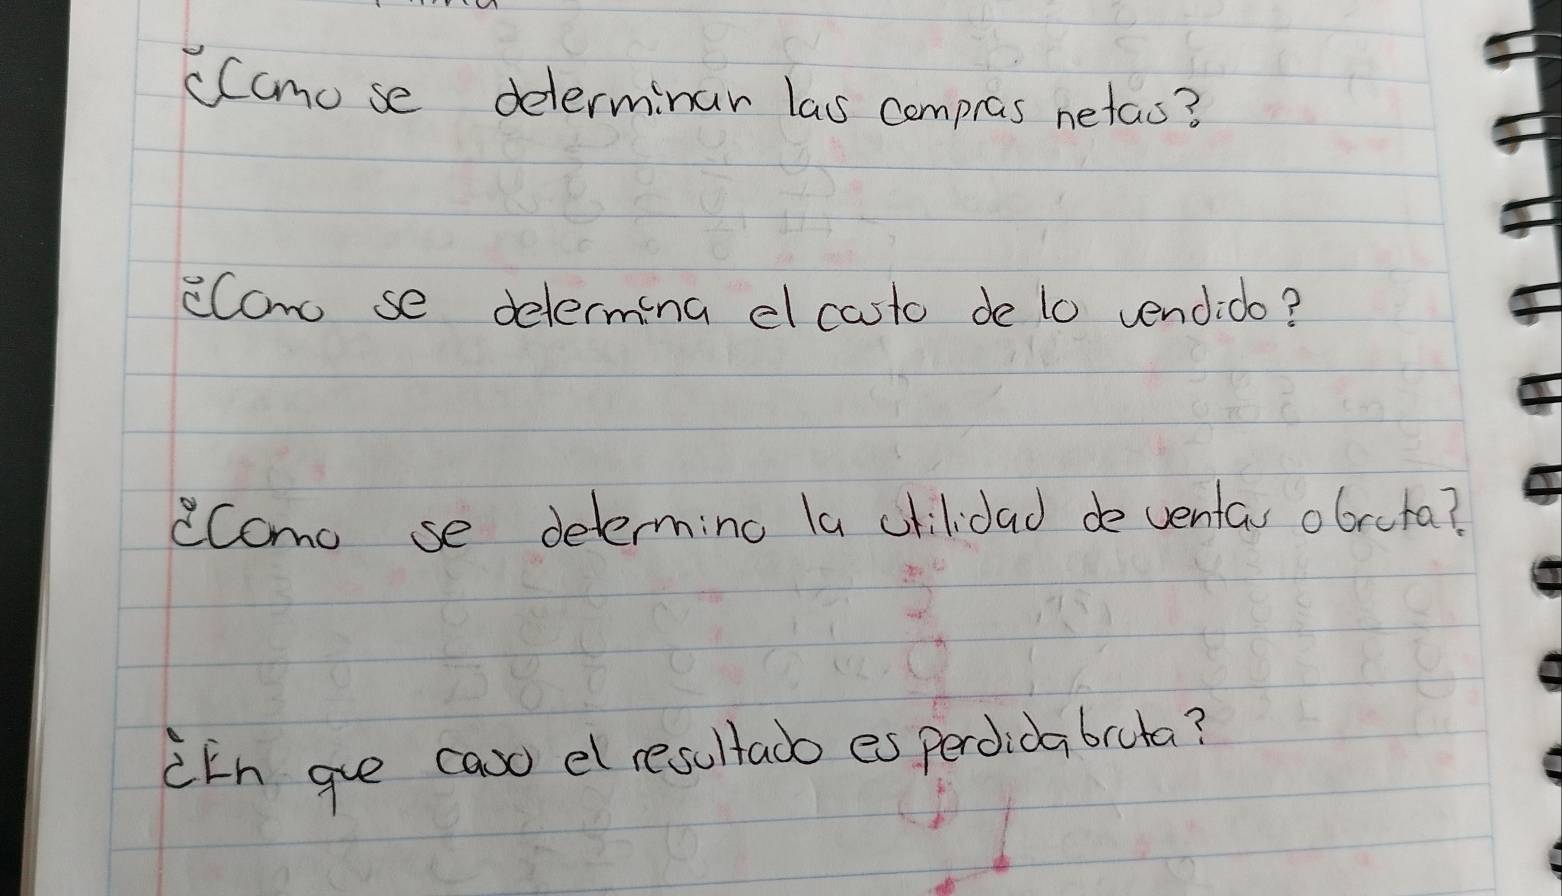 ¿Como se determinan las compras netas?
¿Como se determina el costo de lo vendido?
¿Como se determina la utilidad de ventas o bruta?
¿En que caso el resultado es perdida bruta?